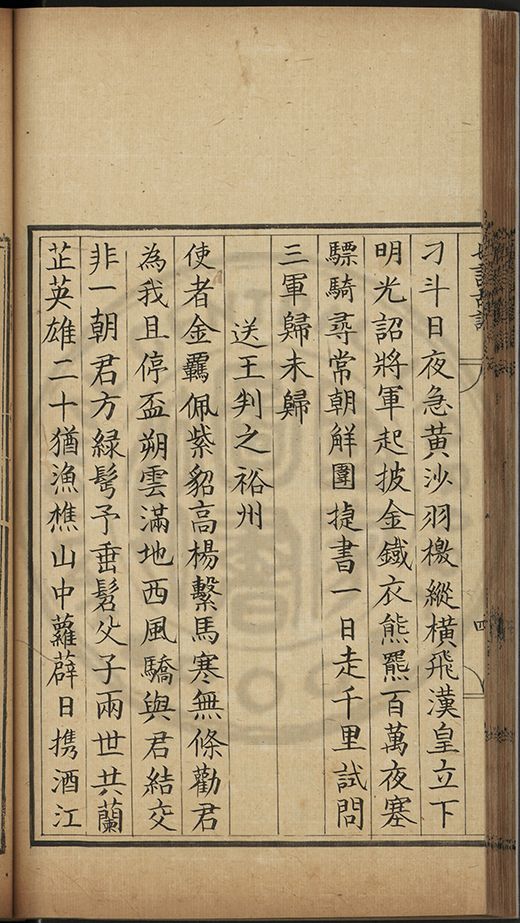 刁斗日夜急黃沙羽檄縱橫飛漢皇立下
明光詔將軍起披金鐵衣熊羆百萬夜塞
驃騎尋常朝觧圍捷書一日走千里試問
三軍歸未歸
送王判之裕州
使者金羈佩紫貂高楊繫馬寒無條勸君
為我且停盃朔雲滿地西風驕與君結交
非一朝君方綠髩予垂髫父子兩世共蘭
芷英雄二十猶漁樵山中蘿薜日携酒江